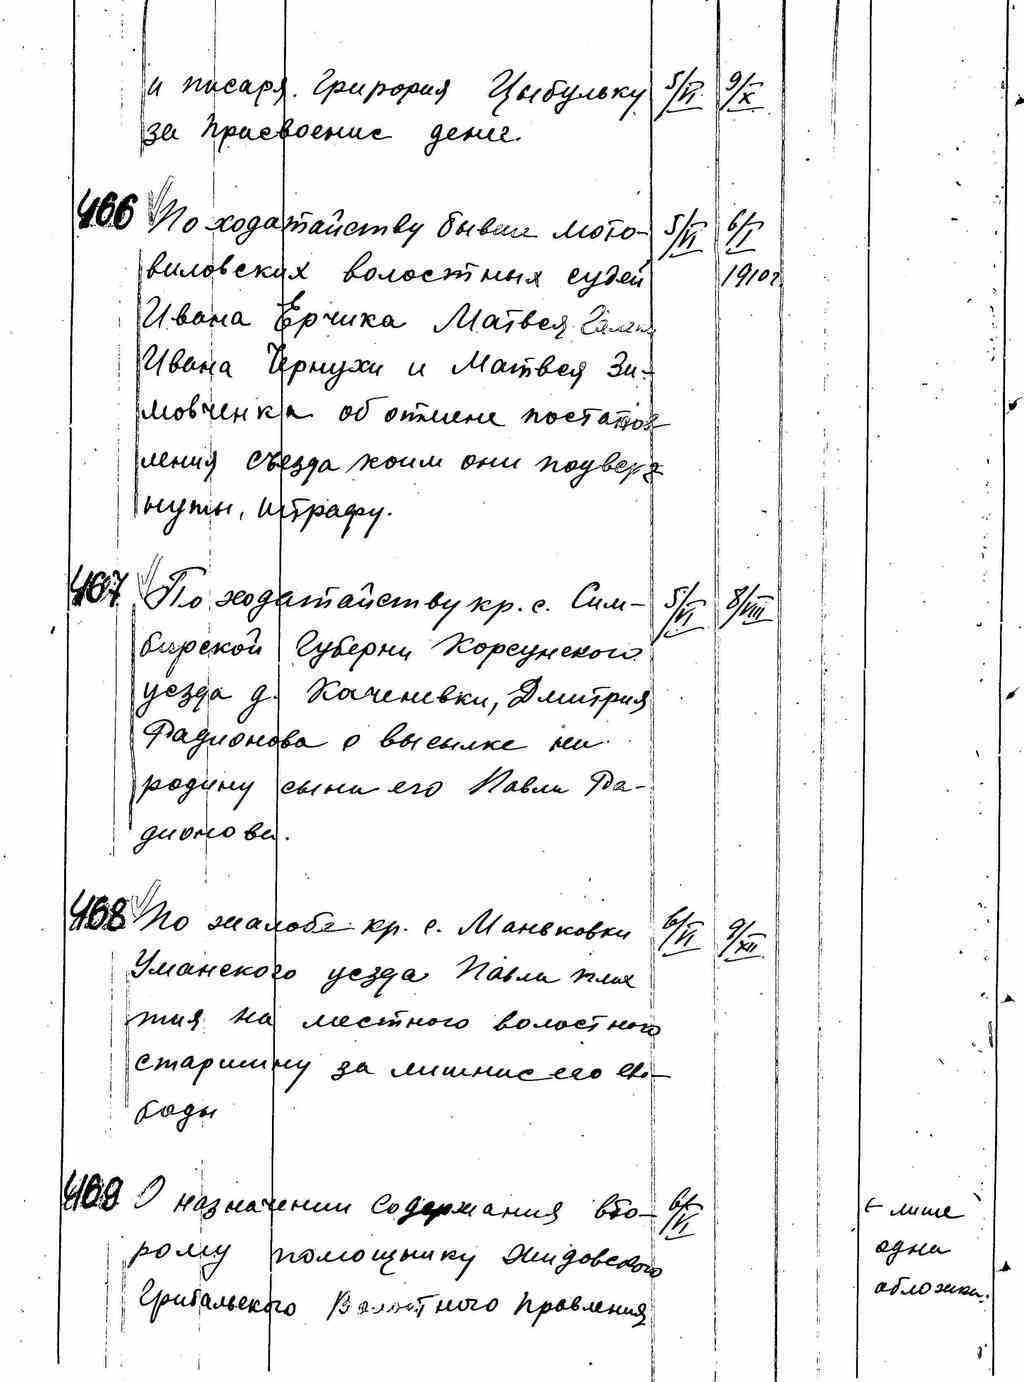 и писаря Григория Цыбульку 5/VI 9/X
за присвоение денег.
466 По ходатайству бывш мото- 5/VI 6/I
виловских волостных судей 1910г
Ивана Ерчика Матвея
Ивана Чернухи и Матвея Зи-
мовченка об отмене постанов
ления съезда коим они подверг
нуты, штрафу.
467 По ходатайству кр. с. Сим- 5/VI 8/VIII
бирской Губерни Корсунского
уезда д. Каченевки, Дмитрия
Радионова о высылке на
родину сына его Павла Ра-
дионова.
468 По жалобе кр. с. Маньковки 6/VI 9/XII
Уманского уезда Павла
на местного волостного
старшину за лишние его сво-
боды
469 О назначении содержания вто- 6/VI ← лише
рому помощнику Жидовского одна
Грибальского Волостного Правления обложка.